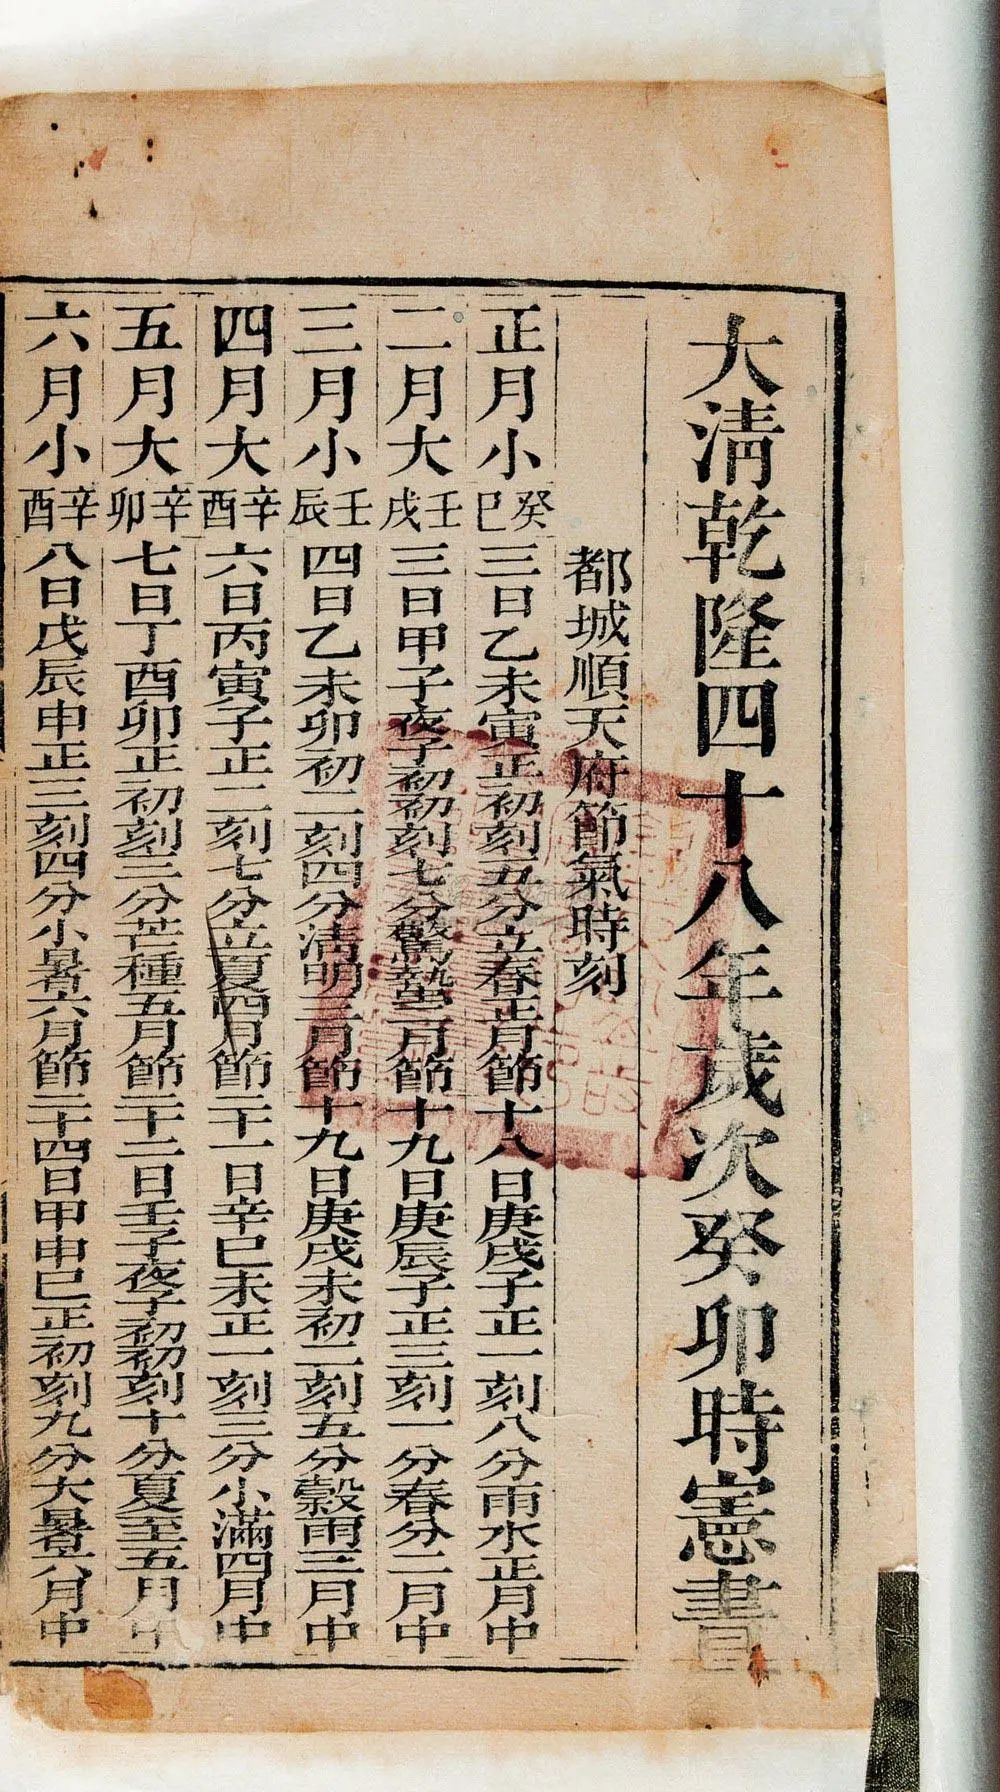 大清乾隆四十八年歲次癸卯時憲書
都城順天府節氣時刻
正月小 癸巳 三日乙未寅正初刻五分立春正月節十八日庚戌子正一刻八分雨水正月中
二月大 壬戌 三日甲子夜子初初刻七分驚蟄二月節十九日庚辰子正三刻一分春分二月中
三月小 壬辰 四日乙未卯初二刻四分清明三月節十九日庚戌未初二刻五分穀雨三月中
四月大 辛酉 六日丙寅子正二刻七分立夏四月節二十一日辛巳未正一刻三分小滿四月中
五月大 辛卯 七日丁酉卯正初刻三分芒種五月節二十二日壬子夜子初初刻十分夏至五月中
六月小 辛酉 八日戊辰申正三刻四分小暑六月節二十四日甲申巳正初刻九分大暑六月中